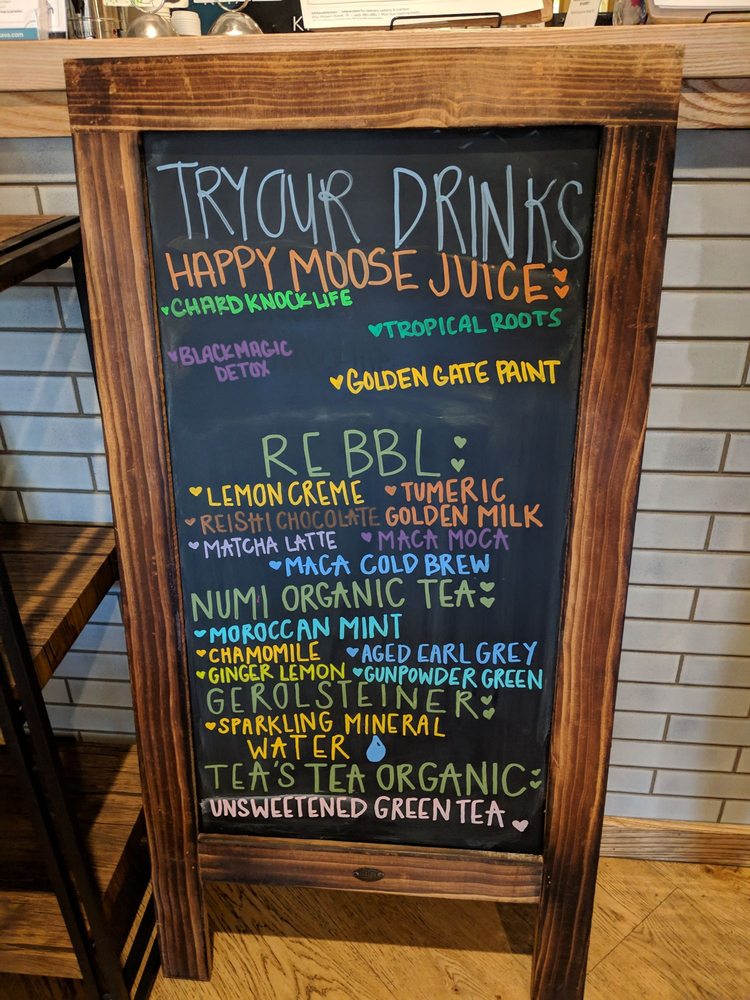 TRY OUR DRINKS
HAPPY MOOSE JUICE:
CHARD KNOCK LIFE
TROPICAL ROOTS
BLACK MAGIC
DETOX
GOLDEN GATE PAINT
REBBL:
LEMON CREME
TUMERIC
GOLDEN MILK
REISHI CHOCOLATE
MATCHA LATTE
MACA MOCA
MACA COLD BREW
NUMI ORGANIC TEA:
MOROCCAN MINT
CHAMOMILE
AGED EARL GREY
GINGER LEMON
GUNPOWDER GREEN
GEROLSTEINER:
SPARKLING MINERAL
WATER
TEA'S TEA ORGANIC:
UNSWEETENED GREEN TEA